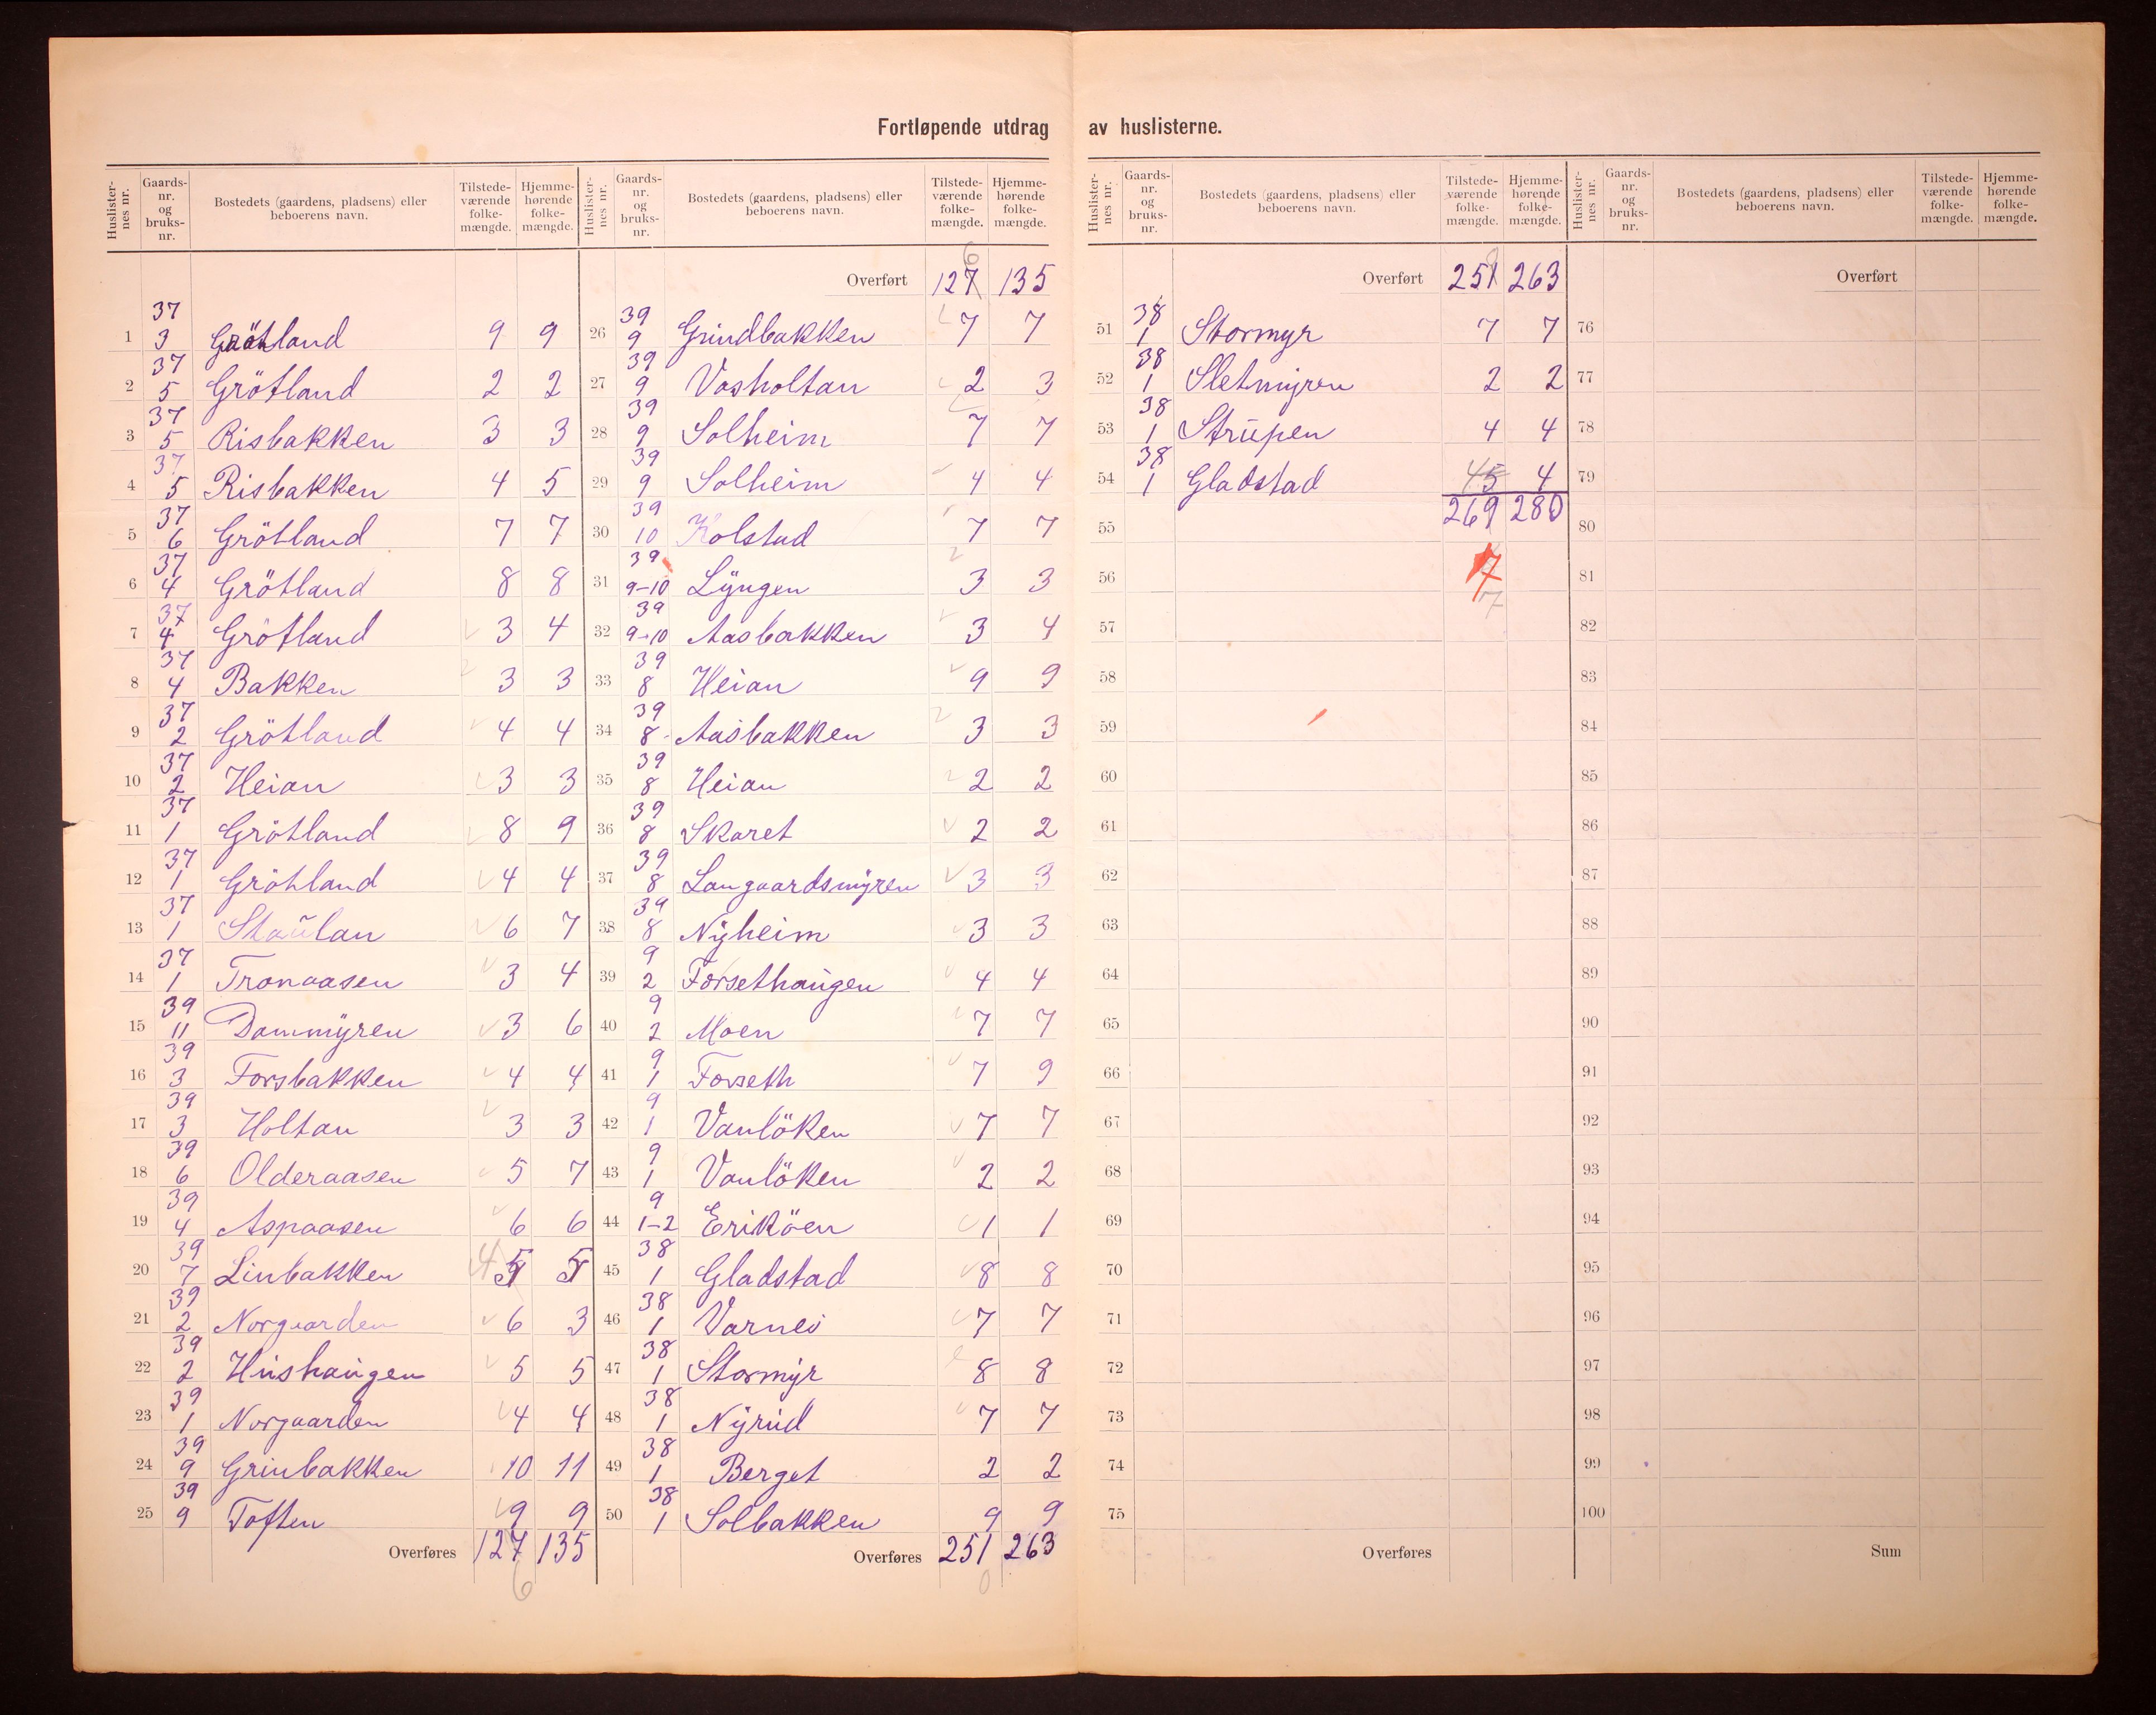 Fortløpende utdrag av huslisterne.
Huslisternes nr. Gaards-nr. og bruks-nr. Bostedets (gaardens, pladsens) eller beboerens navn. Tilstede-værende folke-mængde. Hjemme-hørende folke-mængde.
37
1 3 Grötland 9 9
37
2 5 Grötland 2 2
37
3 5 Risbakken 3 3
37
4 5 Risbakken 4 5
37
5 6 Grötland 7 7
37
6 4 Grötland 8 8
37
7 4 Grötland 3 4
37
8 4 Bakken 3 3
37
9 2 Grötland 4 4
37
10 2 Heian 3 3
37
11 1 Grötland 8 9
37
12 1 Grötland 4 4
37
13 1 Staulan 6 7
37
14 1 Tronaasen 3 4
39
15 11 Dammyren 3 6
39
16 3 Forsbakken 4 4
39
17 3 Holtan 3 3
39
18 6 Olderaasen 5 7
39
19 4 Aspaasen 6 6
39
20 7 Linbakken 4 5 5
39
21 2 Norgaarden 6 3
39
22 2 Hushaugen 5 5
39
23 1 Norgaarden 4 4
39
24 9 Grinbakken 10 11
39
25 9 Toften 9 9
Overføres 127 135
6
Huslisternes nr. Gaards-nr. og bruks-nr. Bostedets (gaardens, pladsens) eller beboerens navn. Tilstede-værende folke-mængde. Hjemme-hørende folke-mængde.
6
Overført 127 135
39
26 9 Grindbakken 7 7
39
27 9 Vasholtan 2 3
39
28 9 Solheim 7 7
39
29 9 Solheim 4 4
39
30 10 Kolstad 7 7
39
31 9-10 Lyngen 3 3
39
32 9-10 Aasbakken 3 4
39
33 8 Heian 9 9
39
34 8 Aasbakken 3 3
39
35 8 Heian 2 2
39
36 8 Skaret 2 2
39
37 8 Langaardsmyren 3 3
39
38 8 Nyheim 3 3
9
39 2 Forsethaugen 4 4
9
40 2 Moen 7 7
9
41 1 Forseth 7 9
9
42 1 Vanlöken 7 7
9
43 1 Vanlöken 2 2
9
44 1-2 Eriköen 1 1
38
45 1 Gladstad 8 8
38
46 1 Varnes 7 7
38
47 1 Stormyr 8 8
38
48 1 Nyrud 7 7
38
49 1 Berget 2 2
38
50 1 Solbakken 9 9
Overføres 251 263
0
Huslisternes nr. Gaards-nr. og bruks-nr. Bostedets (gaardens, pladsens) eller beboerens navn. Tilstede-værende folke-mængde. Hjemme-hørende folke-mængde.
Overført 251 263
38
51 1 Stormyr 7 7
38
52 1 Sletmyren 2 2
38
53 1 Strupen 4 4
38
54 1 Gladstad 45 4
55 269 280
56 7
7
57
58
59
60
61
62
63
64
65
66
67
68
69
70
71
72
73
74
75
Overføres
Huslisternes nr. Gaards-nr. og bruks-nr. Bostedets (gaardens, pladsens) eller beboerens navn. Tilstede-værende folke-mængde. Hjemme-hørende folke-mængde.
Overført
76
77
78
79
80
81
82
83
84
85
86
87
88
89
90
91
92
93
94
95
96
97
98
99
100
Sum